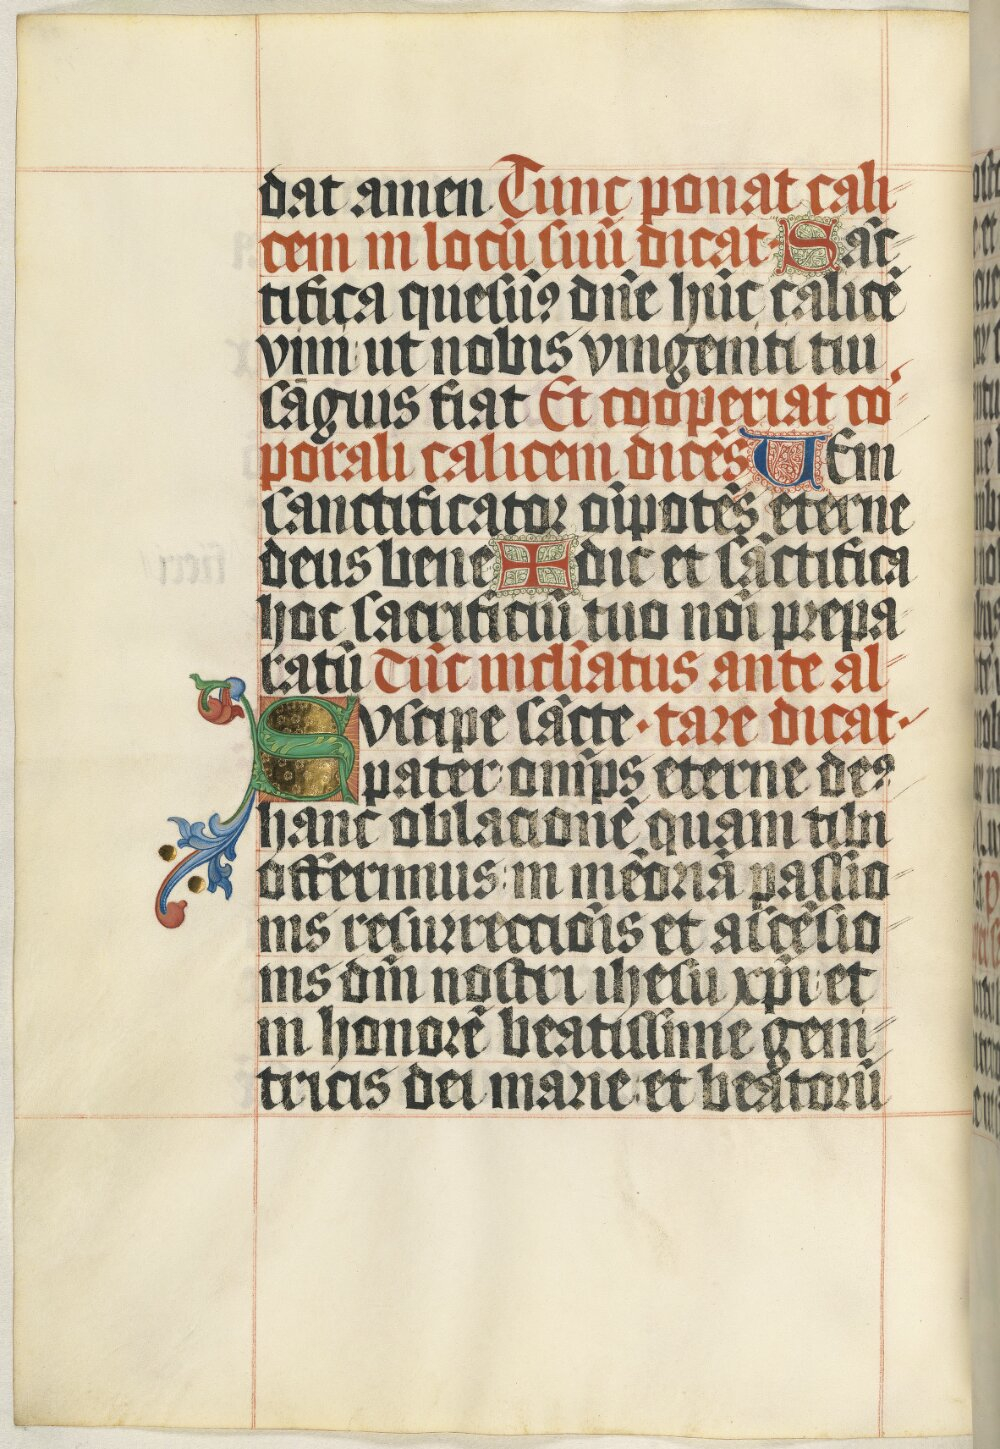 dat amen Tunc ponat cali
cem in locū suū dicat· Sāc
tifica quesūꝰ dn̄e hūc calicē
vini ut nobis vnigeniti tui
sāguis fiat Et cooperiat co
porali calicem dicēs UEni
sanctificator oīpotēs eterne
deus bene✠dic et sāctifica
hoc sacrificiū tuo noī prepa
ratū Tūc inclīatus ante al
Uscipe sācte · tare dicat·
pater om̄ps eterne deꝰ
hanc oblacionē quam tibi
offerimus in mēoriā passio
nis resurrectiōis et ascēsio
nis dn̄i nostri ihesu xp̄i et
in honorē beatissime geni
tricis dei marie et beatorū